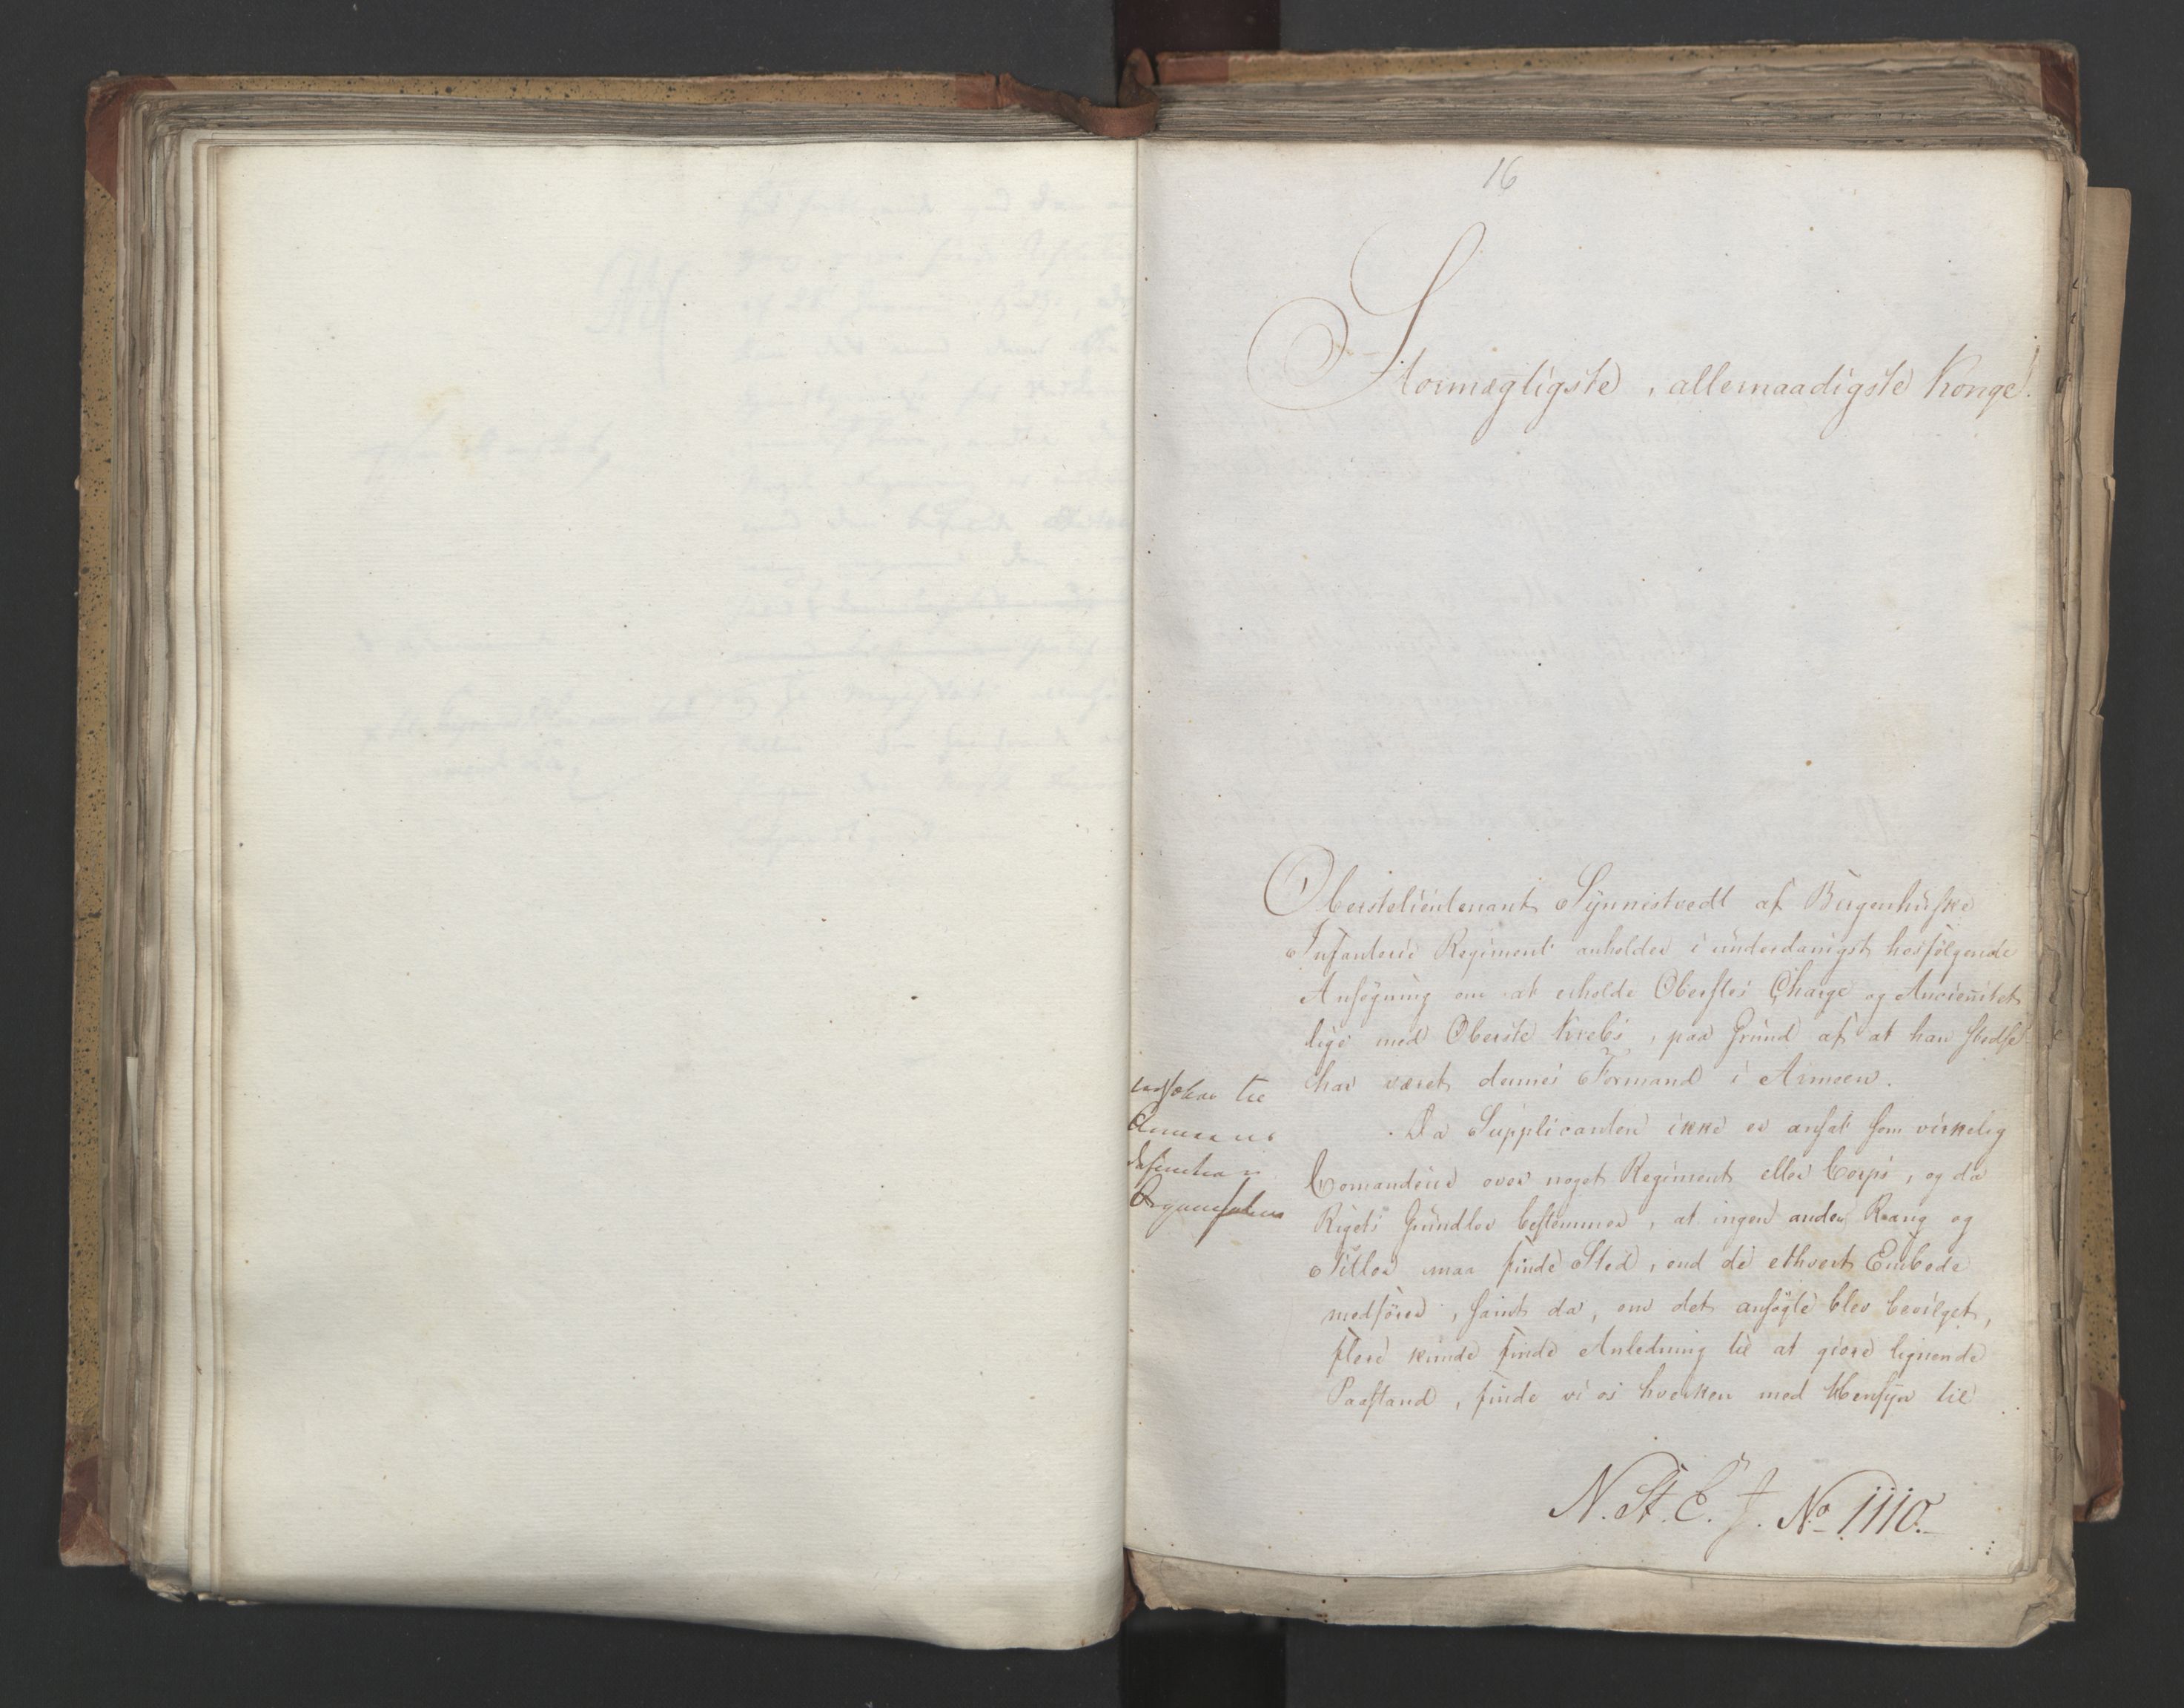 16
Stormægtigste, allernaadigste Konge!
Oberstelieutenant Synnestvedt af Bergenhuske
Infanterie Regiment anholder i underdanigst hosfølgende
Ansøgning om at erholde Oberstes Charge og Anciennitet
lige med Oberste Krebs, paa Grund af at han stedse
har været dennes Formand i Armeen.
Da Supplicanten ikke er ansat som virkelig
Comandeur over noget Regiment eller Corps, og da
Rigets Grundlov bestemmer, at ingen anden Rang og
Titler maa finde Sted, end de ethvert Embede
medfører, samt da, om det ansøgte blev bevilget,
flere kunde finde Anledning til at giøre lignende
Paastand, finde vi os hverken med Hensyn til
til
Armeens
definitive
Organisation
N. St. C. J. No 1110.